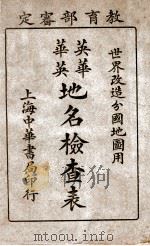 教育部審定
世界改造分國地圖用
英華
華英
地名檢查表
上海中華書局印行